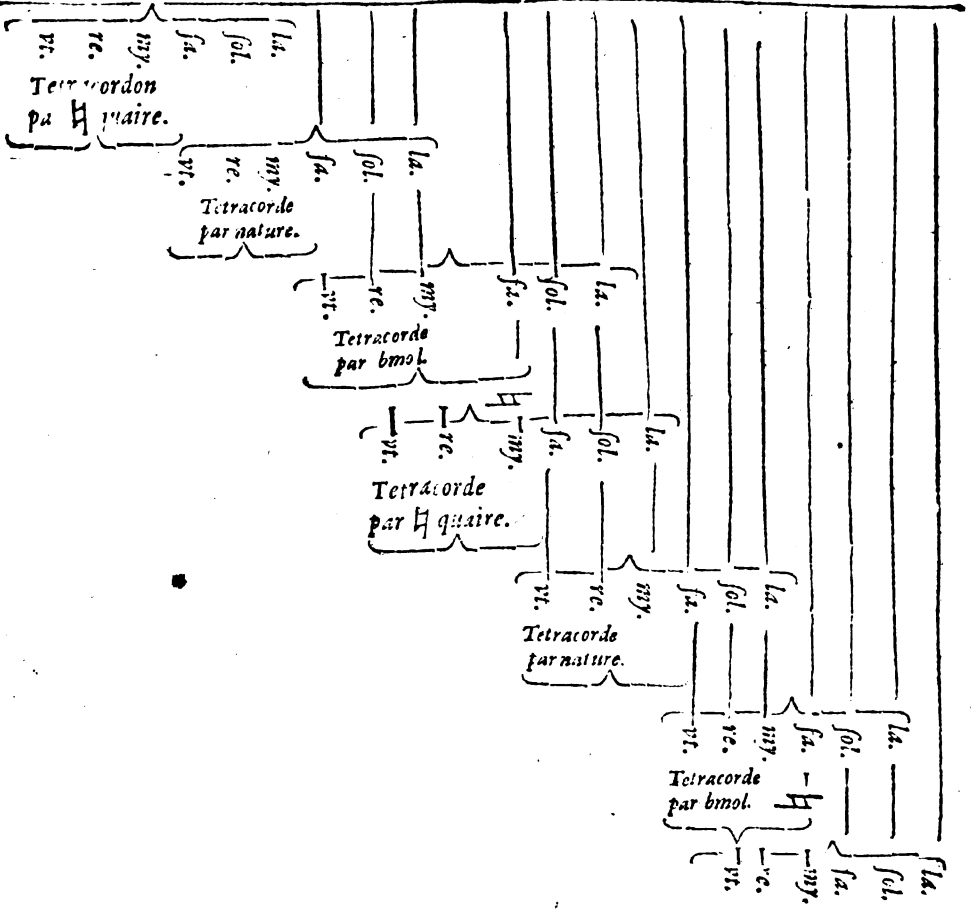 vt. re. my. ſa. ſol. la.
Tetracordon
pa ♮ quaire.
vt. re. my. ſa. ſol. la.
Tetracorde
par nature.
vt. re. my. ſa. ſol. la.
Tetracorde
par bmol.
♮
vt. re. my. ſa. ſol. la.
Tetracorde
par ♮ quaire.
vt. re. my. ſa. ſol. la.
Tetracorde
par nature.
vt. re. my. ſa. ſol. la.
Tetracorde
par bmol. ♮
vt. re. my. ſa. ſol. la.